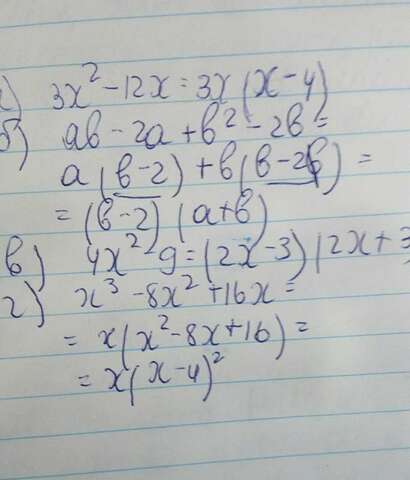 а) 3x² - 12x = 3x(x - 4)
б) ab - 2a + b² - 2b =
a(b - 2) + b(b - 2) =
= (b - 2)(a + b)
в) 4x² - 9 = (2x - 3)(2x + 3
г) x³ - 8x² + 16x =
= x(x² - 8x + 16) =
= x(x - 4)²